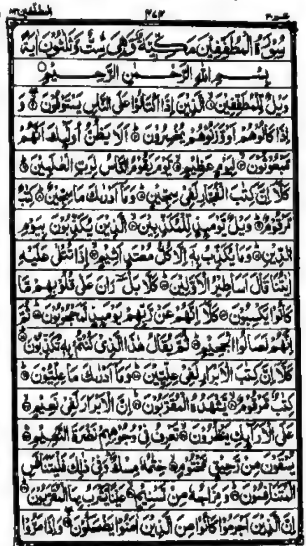 المطففين ٨٣
٢٧٢
عم ٣٠
سورة المطففين مكية وهي ست وثلثون اية
بسم الله الرحمن الرحيم
ويل للمطففين الذين اذا اكتالوا على الناس يستوفون و
اذا كالوهم او وزنوهم يخسرون الا يظن اولئك انهم
مبعوثون ليوم عظيم يوم يقوم الناس لرب العلمين
كلا ان كتب الفجار لفي سجين وما ادرىك ما سجين كتب
مرقوم ويل يومئذ للمكذبين الذين يكذبون بيوم
الدين وما يكذب به الا كل معتد اثيم اذا تتلى عليه
ايتنا قال اساطير الاولين كلا بل ران على قلوبهم ما
كانوا يكسبون كلا انهم عن ربهم يومئذ لمحجوبون ثم
انهم لصالوا الجحيم ثم يقال هذا الذي كنتم به تكذبون
كلا ان كتب الابرار لفي عليين وما ادرىك ما عليون
كتب مرقوم يشهده المقربون ان الابرار لفي نعيم
على الارائك ينظرون تعرف في وجوههم نضرة النعيم
يسقون من رحيق مختوم ختمه مسك وفي ذلك فليتنافس
المتنافسون ومزاجه من تسنيم عينا يشرب بها المقربون
ان الذين اجرموا كانوا من الذين امنوا يضحكون واذا مروا